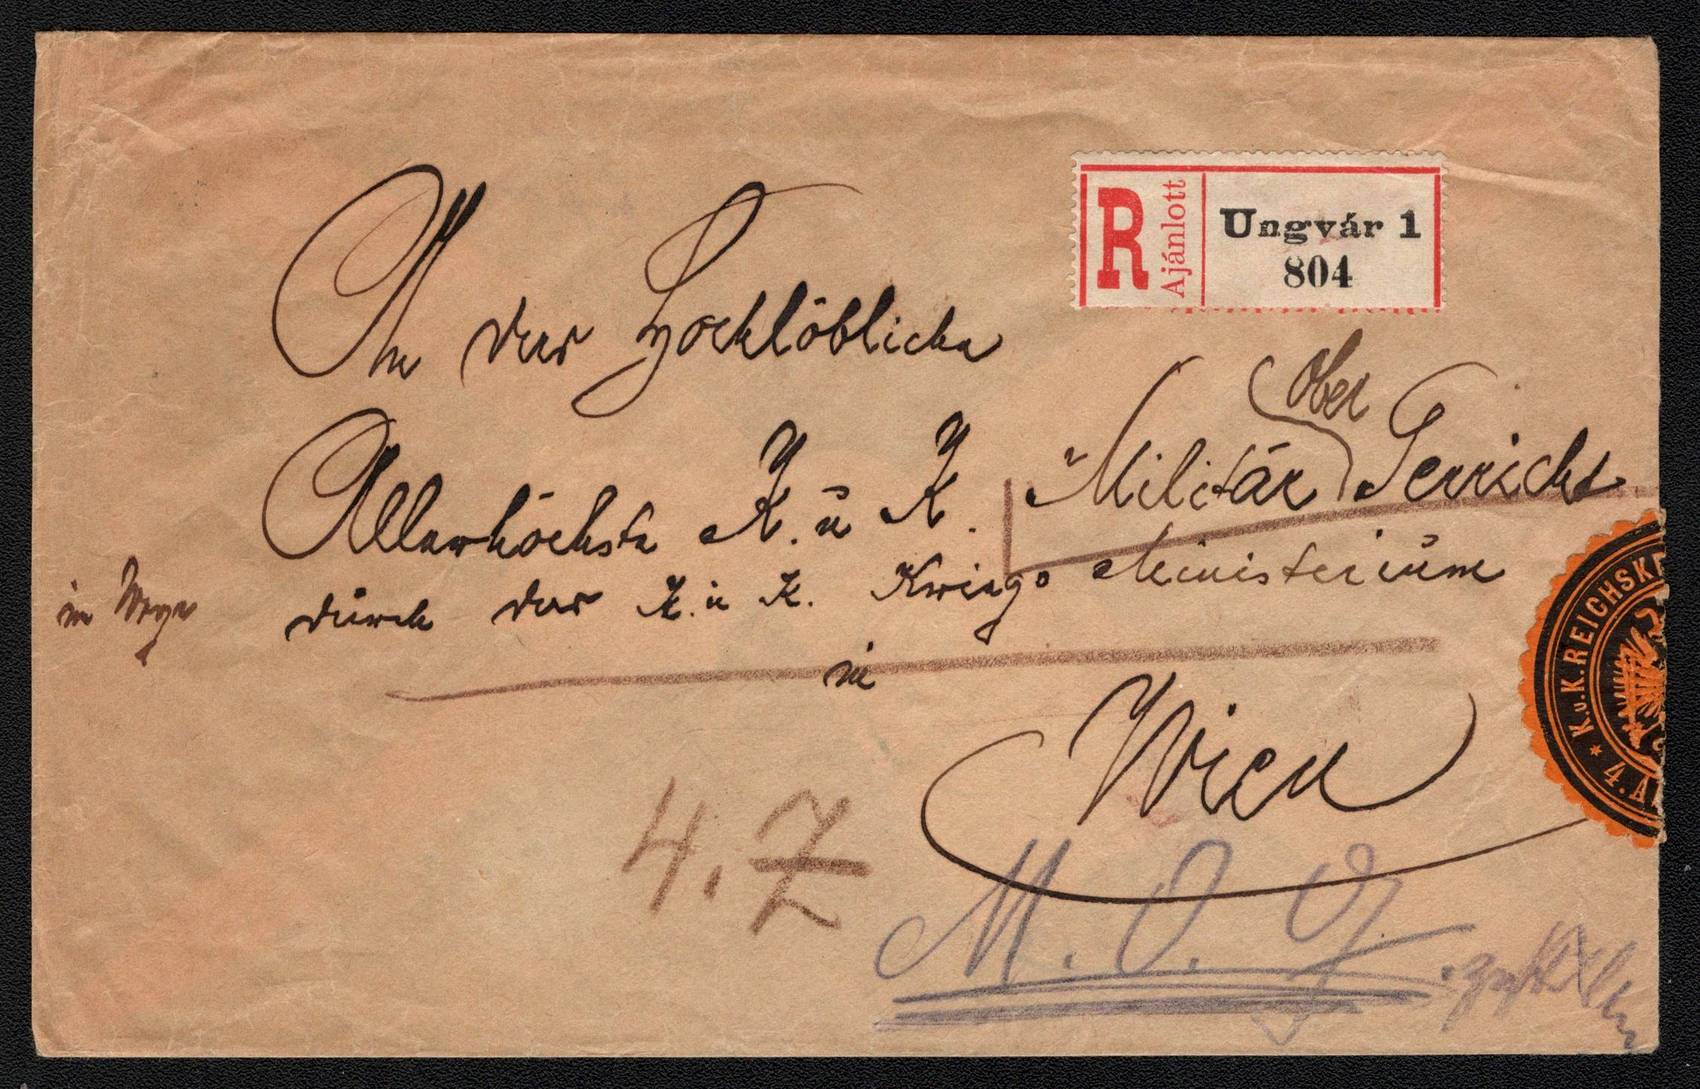 R Ajánlott
Ungvár 1
804
An der Hochlöbliche
ober
Allerhöchste K. u K. Militär Gerricht
im Wege durch der K. u K. Kriegs Ministerium
in
Wien
* K.u.K. REICHSKR
4. A
4. Z
M. O. G.